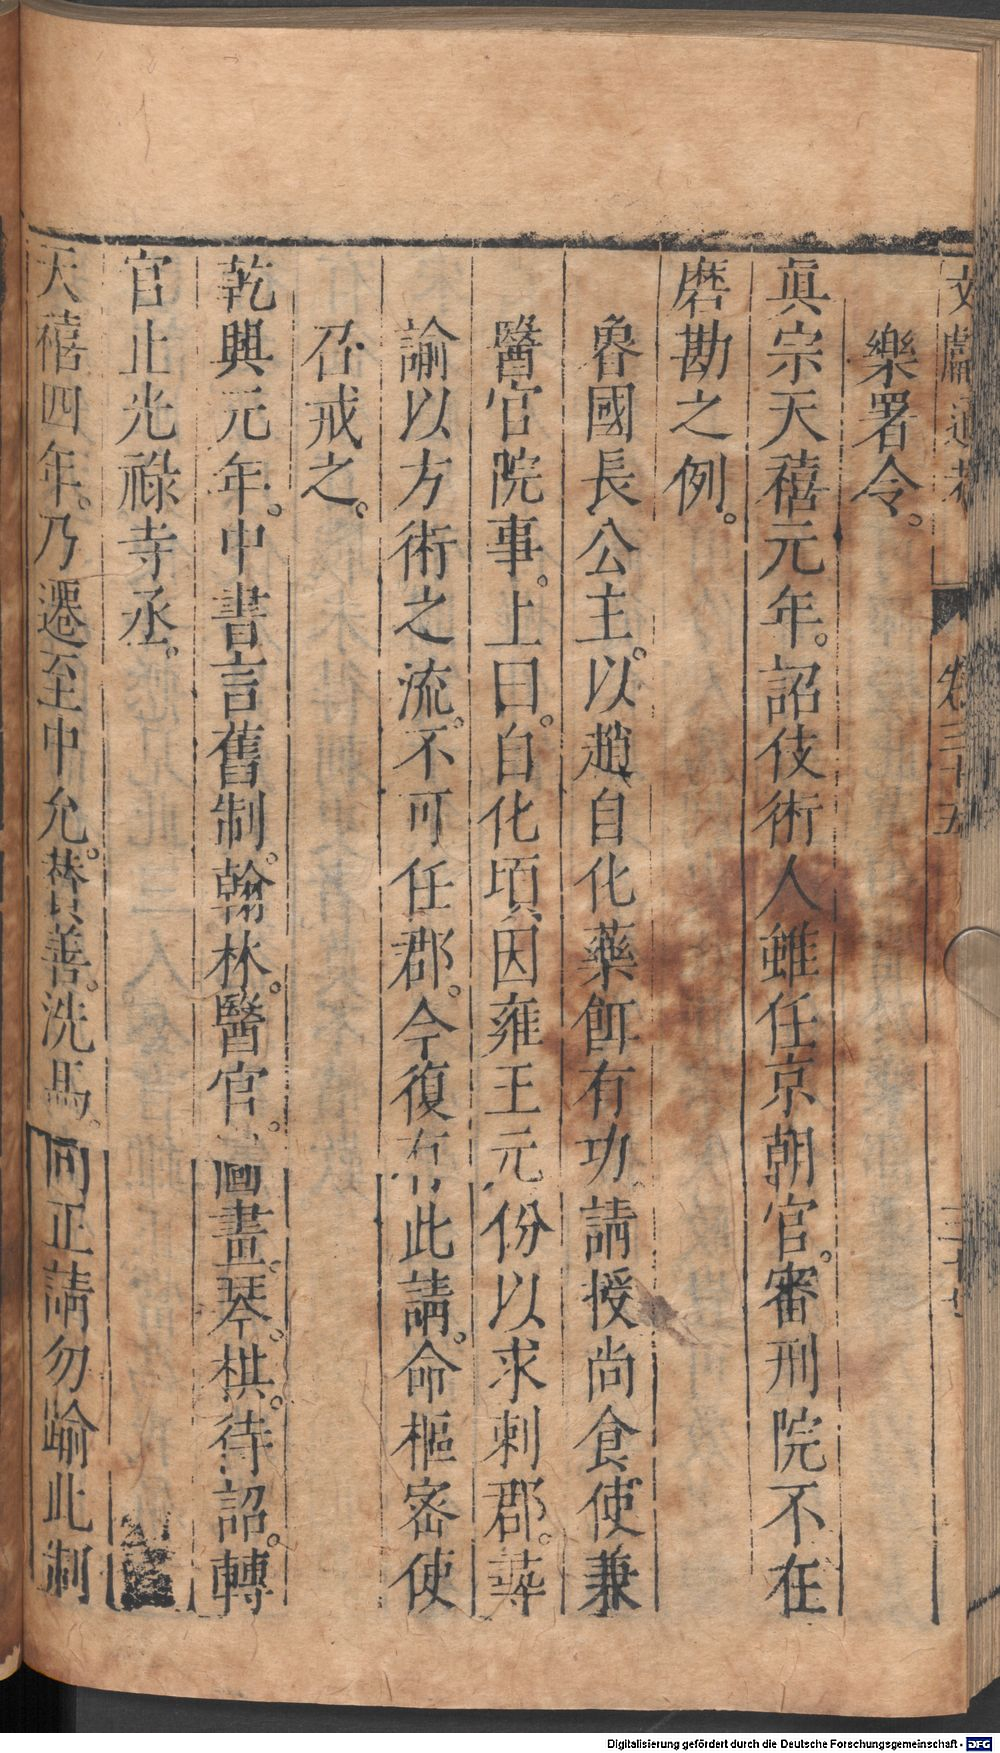 文獻通考 卷三十五 三十
樂署令。
眞宗天禧元年。詔伎術人雖任京朝官。審刑院不在
磨勘之例。
魯國長公主。以趙自化藥餌有功。請授尚食使兼
醫官院事。上曰。自化頃因雍王元份以求刺郡。尋
諭以方術之流。不可任郡。今復有此請。命樞密使
召戒之。
乾興元年。中書言舊制。翰林。醫官。圖畫。琴。棋。待詔。轉
官止光祿寺丞。
天禧四年。乃遷至中允。贊善。洗馬。同正請勿踰此制
Digitalisierung gefördert durch die Deutsche Forschungsgemeinschaft - DFG